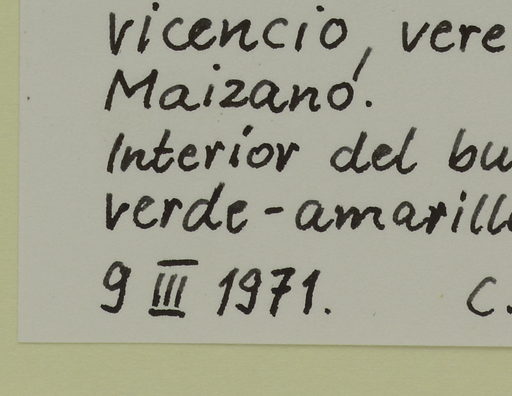 vicencio, vere
Maizano.
Interior del bu
verde-amarill
9 III 1971. C.